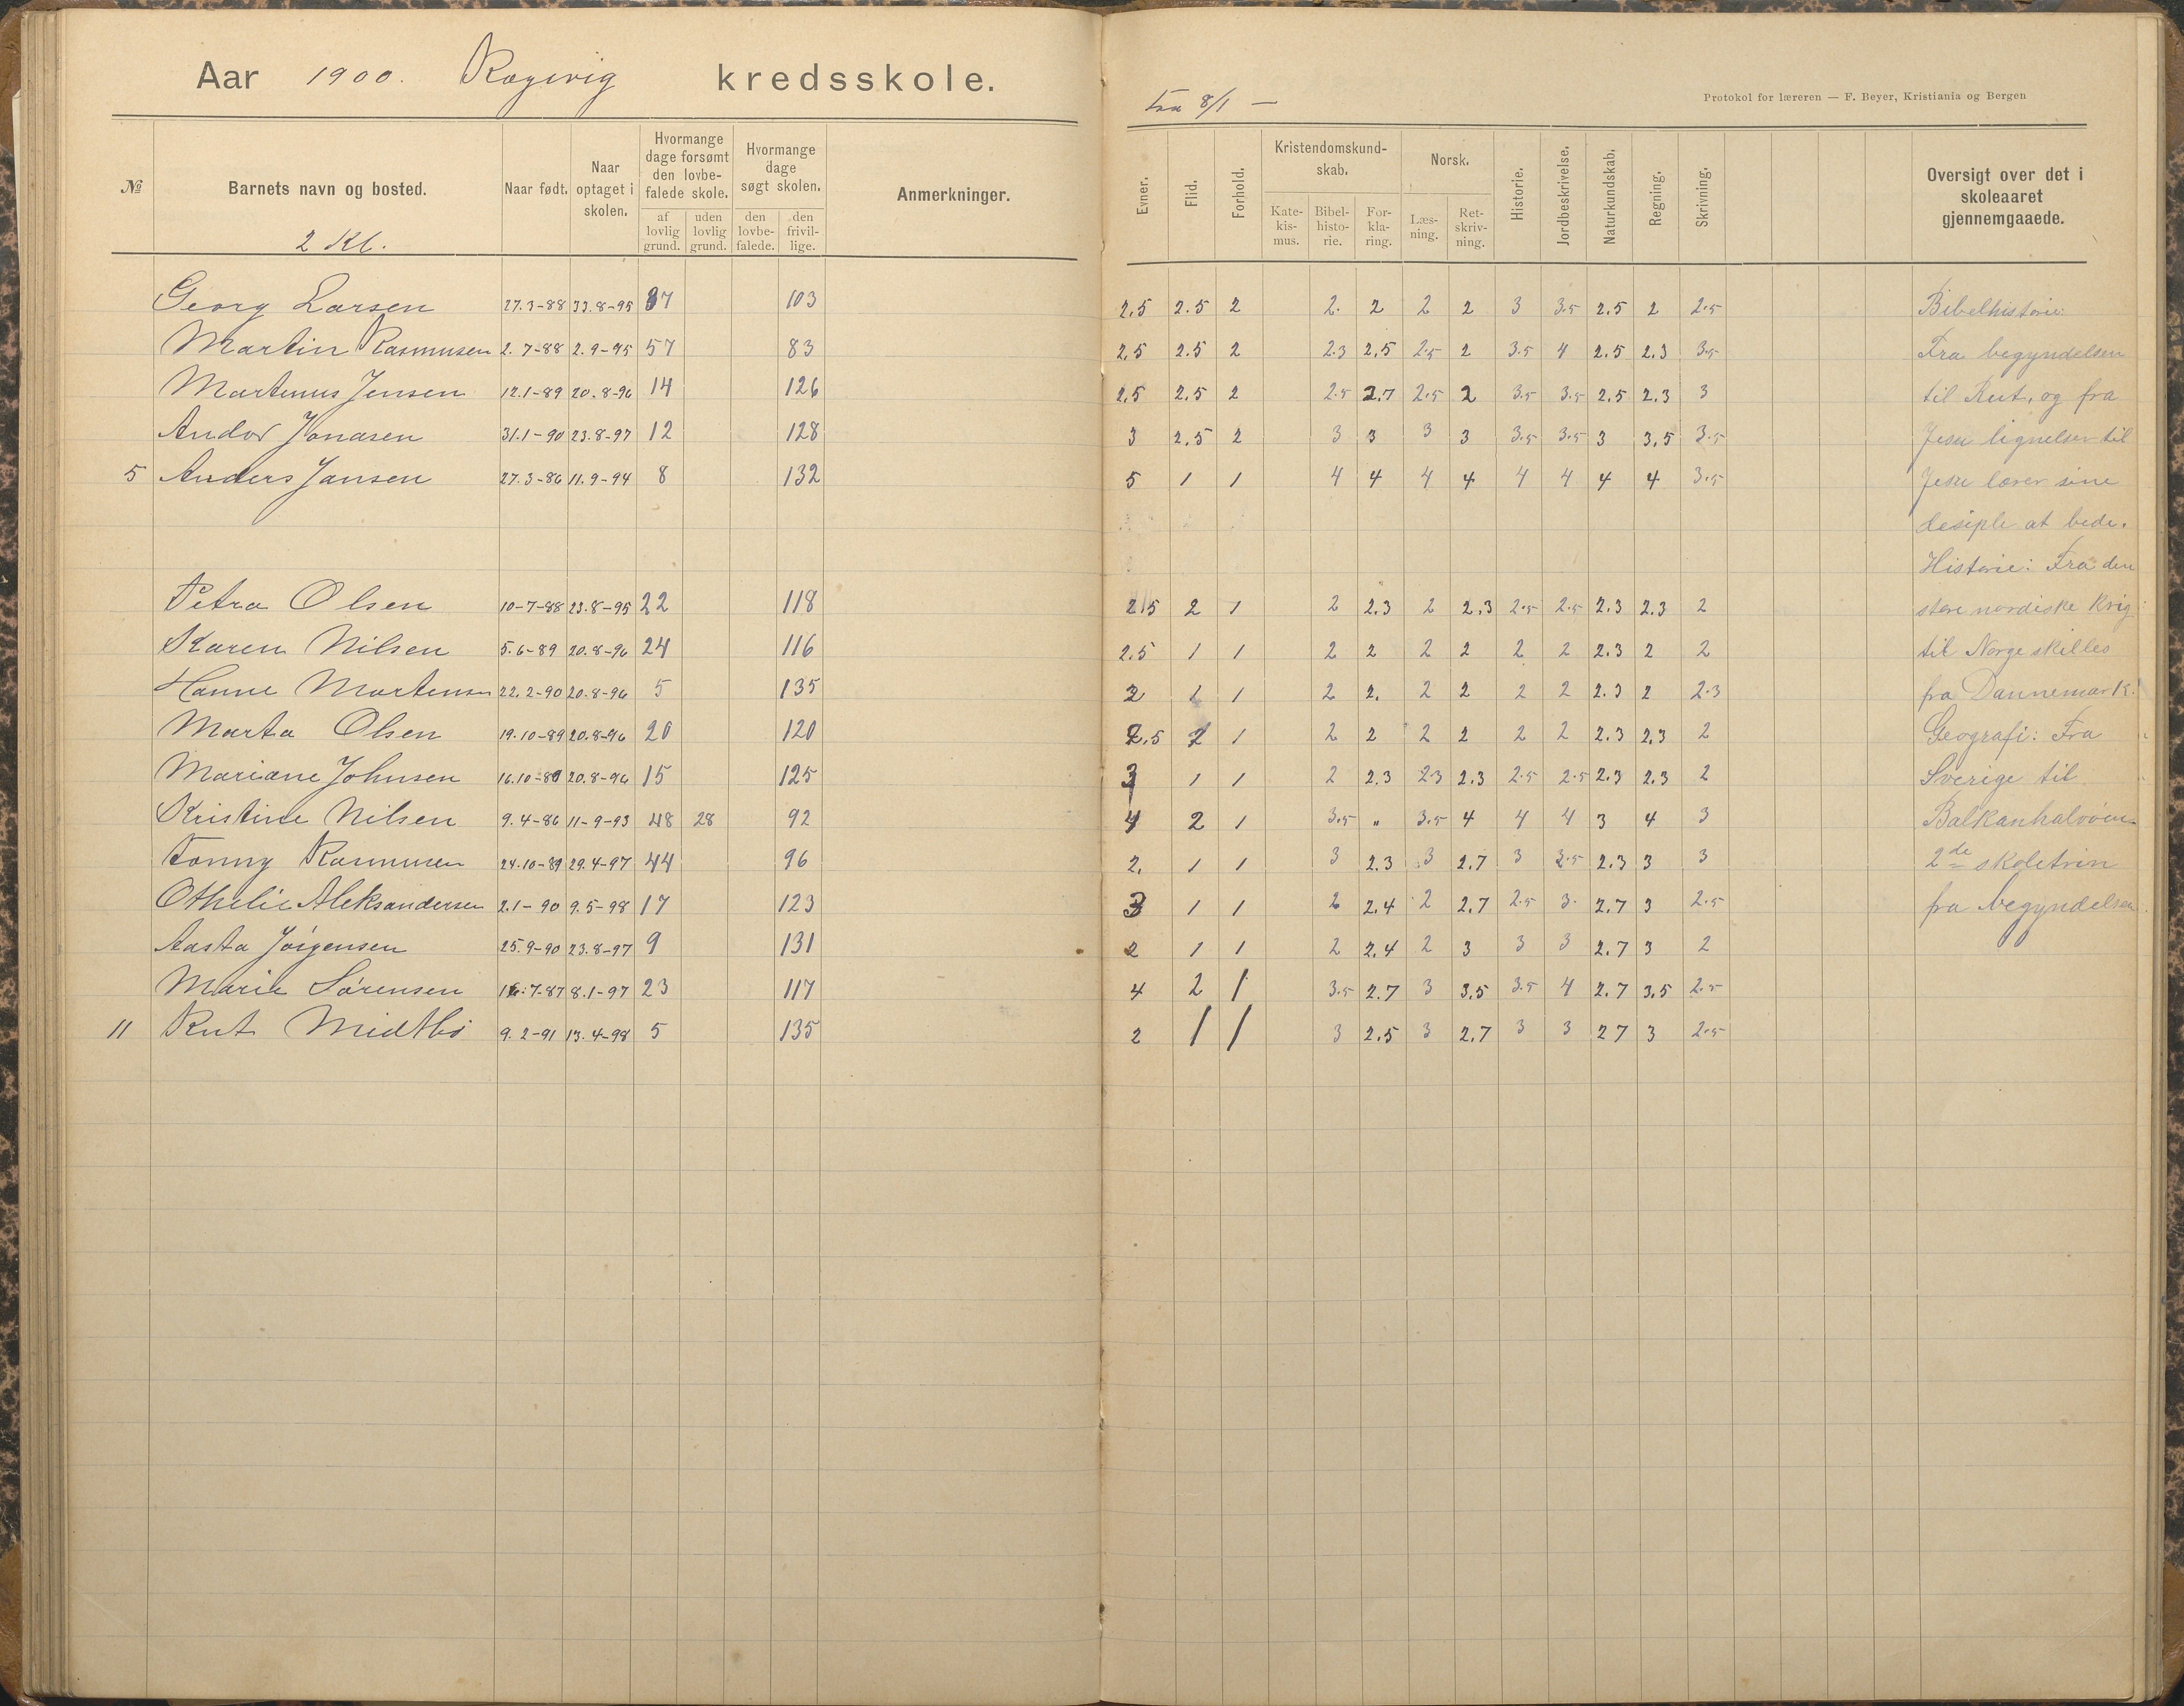 Aar 1900. Ragevig kredsskole.
Fra 8/1 —
Protokol for læreren — F. Beyer, Kristiania og Bergen
№ Barnets navn og bosted. Naar født. Naar optaget i skolen. Hvormange dage forsømt den lovbefalede skole. af lovlig grund. uden lovlig grund. Hvormange dage søgt skolen. den lovbefalede. den frivillige. Anmerkninger. Evner. Flid. Forhold. Kristendomskundskab. Katekismus. Bibelhistorie. Forklaring. Norsk. Læsning. Retskrivning. Historie. Jordbeskrivelse. Naturkundskab. Regning. Skrivning. Oversigt over det i skoleaaret gjennemgaaede.
2 Kl.
Georg Larsen 27.3-88 33.8-95 37 103 2.5 2.5 2 2. 2 2 2 3 3.5 2.5 2 2.5 Bibelhistorie:
Martin Rasmusen 2.7-88 2.9-95 57 83 2.5 2.5 2 2.3 2.5 2.5 2 3.5 4 2.5 2.3 3.5 Fra begyndelsen
Martinus Jensen 12.1-89 20.8-96 14 126 2.5 2.5 2 2.5 2.7 2.5 2 3.5 3.5 2.5 2.3 3 til Rut, og fra
Andor Jonasen 31.1-90 23.8-97 12 128 3 2.5 2 3 3 3 3 3.5 3.5 3 3.5 3.5 Jesu lignelser til
5 Anders Jansen 27.3-86 11.9-94 8 132 5 1 1 4 4 4 4 4 4 4 4 3.5 Jesu lærer sine
desiple at bede.
Historie: Fra den
Petra Olsen 10-7-88 23.8-95 22 118 2.5 2 1 2 2.3 2 2.3 2.5 2.5 2.3 2.3 2 store nordiske Krig
Karen Nilsen 5.6-89 20.8-96 24 116 2.5 1 1 2 2 2 2 2 2 2.3 2 2 til Norge skilles
Hanne Martensen 22.2-90 20.8-96 5 135 2 1 1 2 2. 2 2 2 2 2.3 2 2.3 fra Dannemark.
Marta Olsen 19.10-89 20.8-96 20 120 2.5 2 1 2 2 2 2 2 2 2.3 2.3 2 Geografi: Fra
Mariane Johnsen 16.10-89 20.8-96 15 125 3 1 1 2 2.3 2.3 2.3 2.5 2.5 2.3 2.3 2 Sverige til
Kristine Nilsen 9.4-86 11-9-93 48 28 92 4 2 1 3.5 " 3.5 4 4 4 3 4 3 Balkanhalvøen.
Fanny Rasmusen 24.10-89 29.4-97 44 96 2. 1 1 3 2.3 3 2.7 3 3.5 2.3 3 3 2de skoletrin
Othelie Aleksandersen 2.1-90 9.5-98 17 123 3 1 1 2 2.4 2 2.7 2.5 3. 2.7 3 2.5 fra begyndelsen
Aasta Jørgensen 25.9-90 23.8-97 9 131 2 1 1 2 2.4 2 3 3 3 2.7 3 2
Marie Sørensen 16.7-87 8.1-97 23 117 4 2 1 3.5 2.7 3 3.5 3.5 4 2.7 3.5 2.5
11 Rut Midtbø 9.2-91 13.4-98 5 135 2 1 1 3 2.5 3 2.7 3 3 27 3 2.5